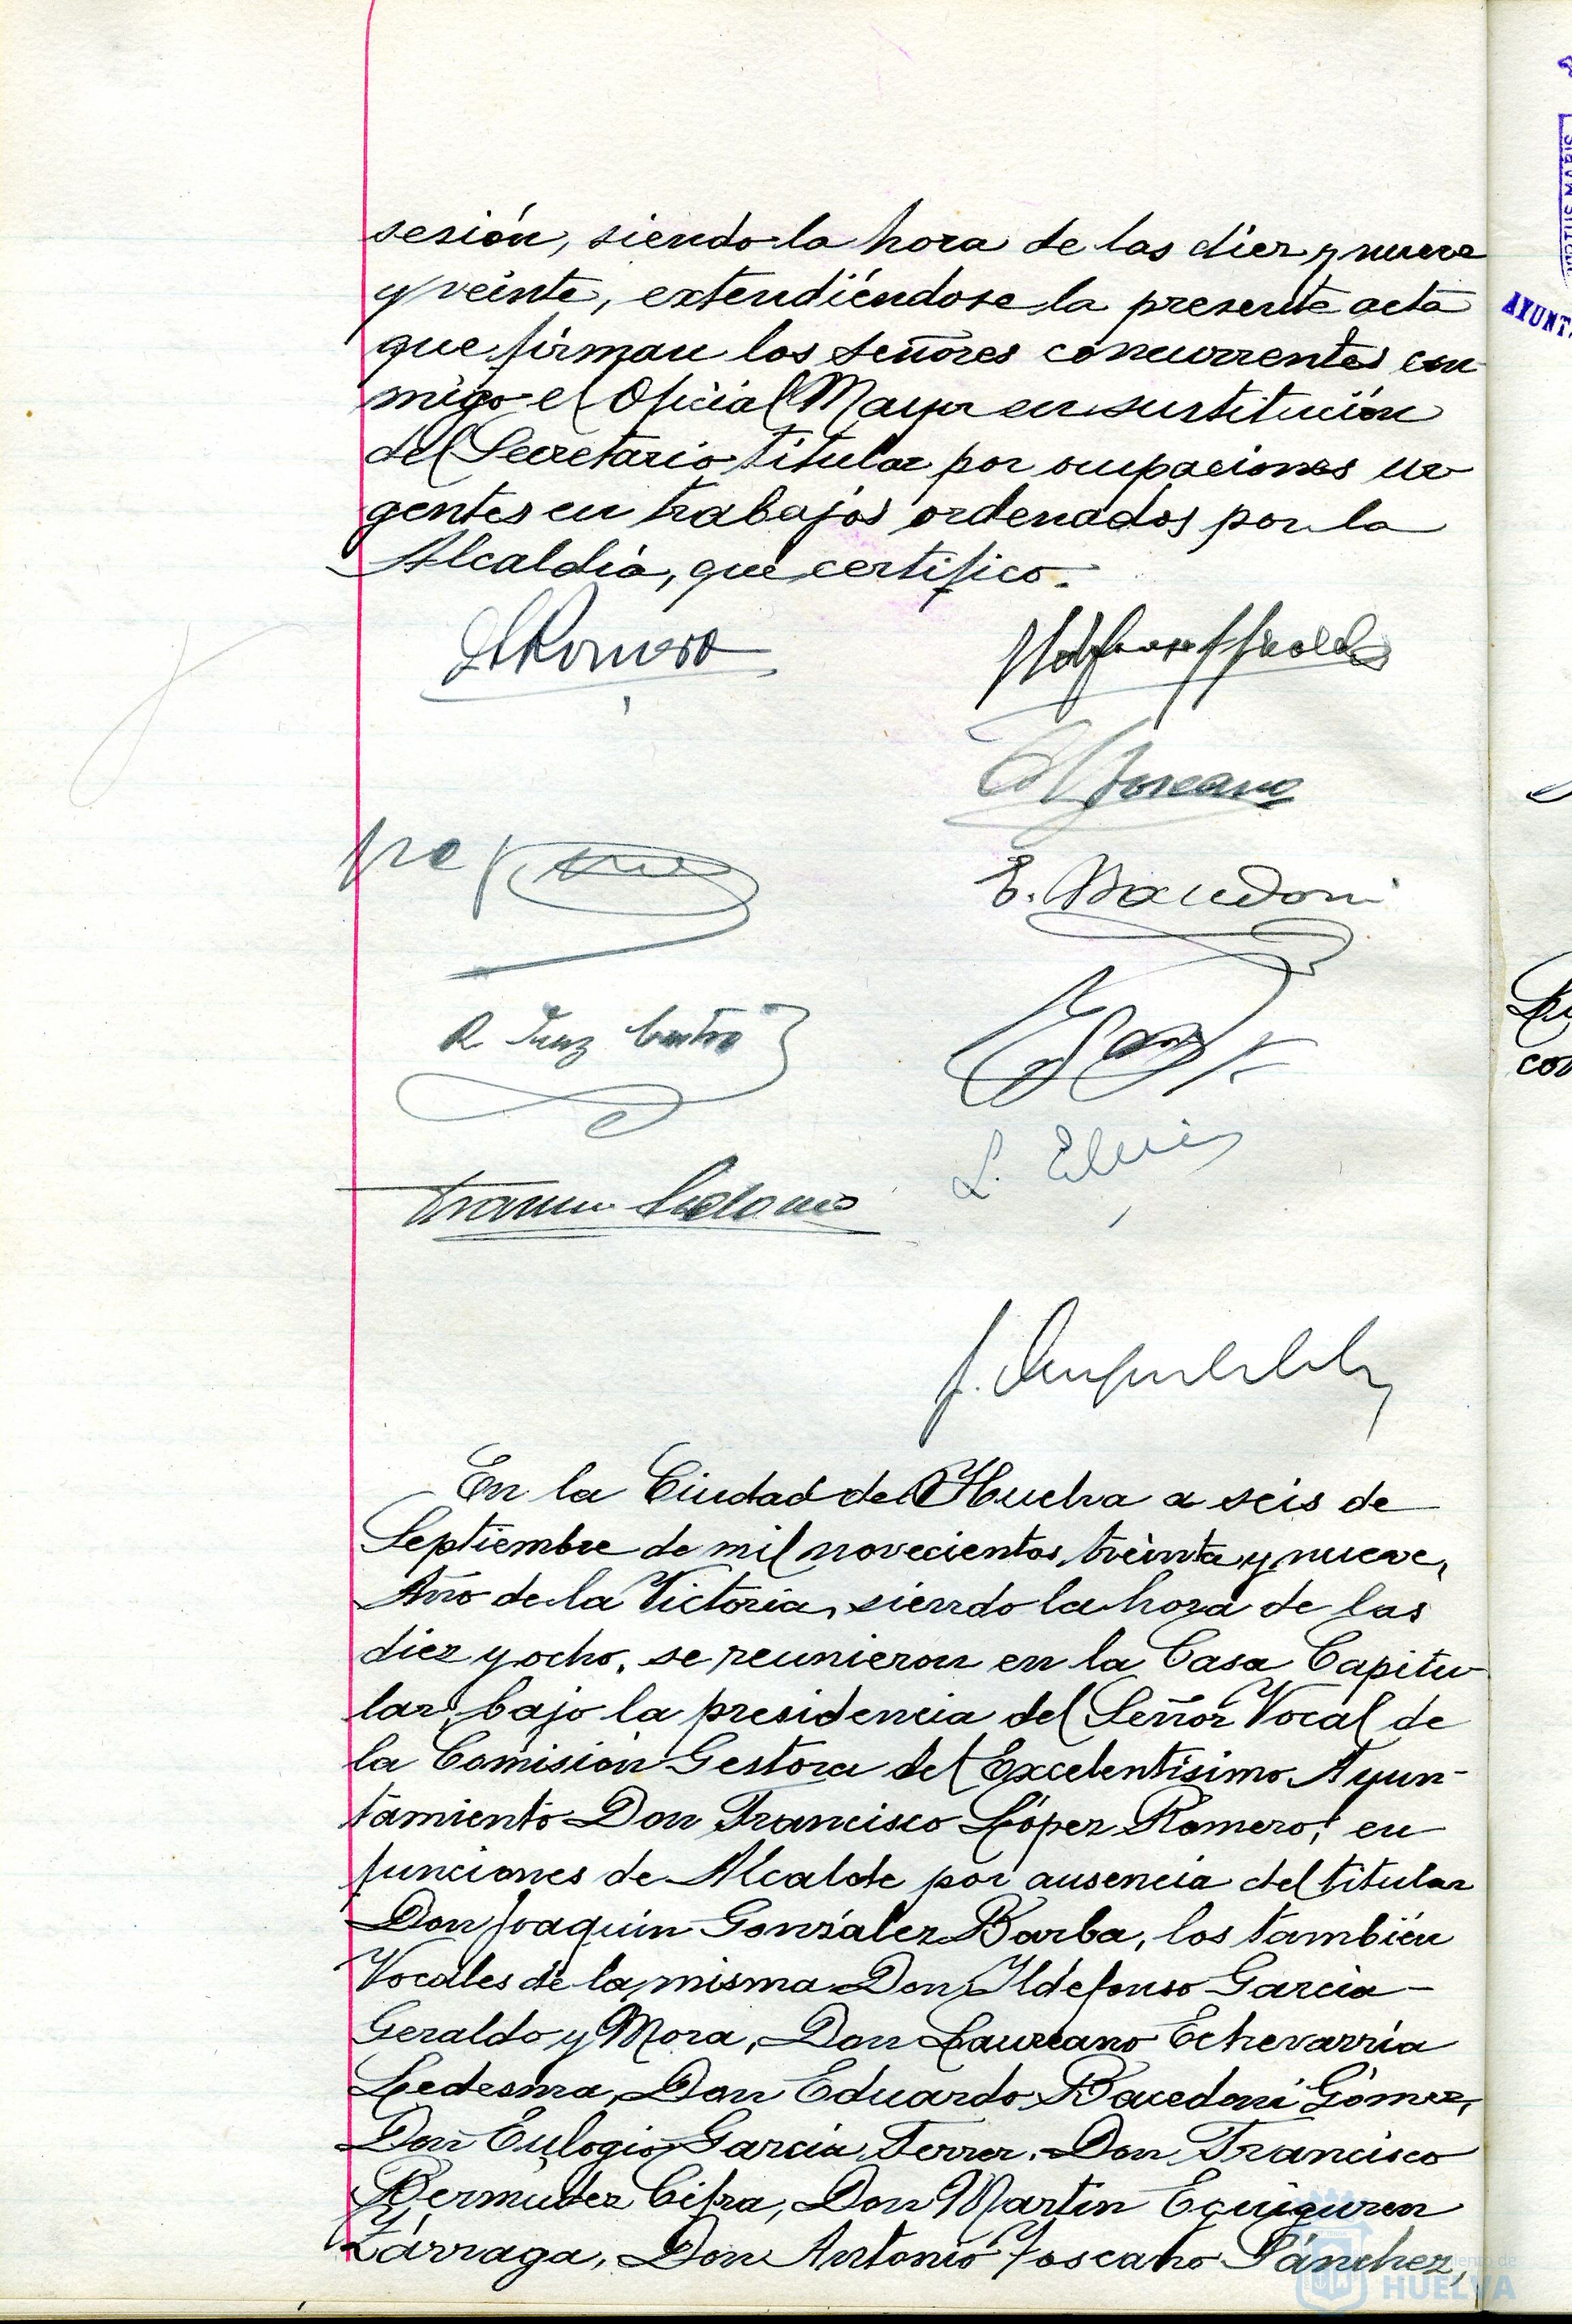 sesión, siendo la hora de las diez y nueve
y veinte, extendiéndose la presente acta
que firman los señores concurrentes con
migo el Oficial Mayor en sustitución
del Secretario titular por ocupaciones ur
gentes en trabajos ordenados por la
Alcaldía, que certifico.
E. Bacedoni
R. Díaz
En la Ciudad de Huelva a seis de
Septiembre de mil novecientos treinta y nueve,
Año de la Victoria, siendo la hora de las
diez y ocho, se reunieron en la Casa Capitu-
lar, bajo la presidencia del Señor Vocal de
la Comisión Gestora del Excelentísimo Ayun-
tamiento Don Francisco López Romero, en
funciones de Alcalde por ausencia del titular
Don Joaquín González Barba, los también
Vocales de la misma Don Ildefonso García-
Geraldo y Mora, Don Laureano Echevarría
Ledesma, Don Eduardo Bacedoni Gómez,
Don Eulogio García Ferrer, Don Francisco
Bermudez Cifra, Don Martín Eguiguren
Zárraga, Don Antonio Toscano Sánchez,
HUELVA
AYUNT